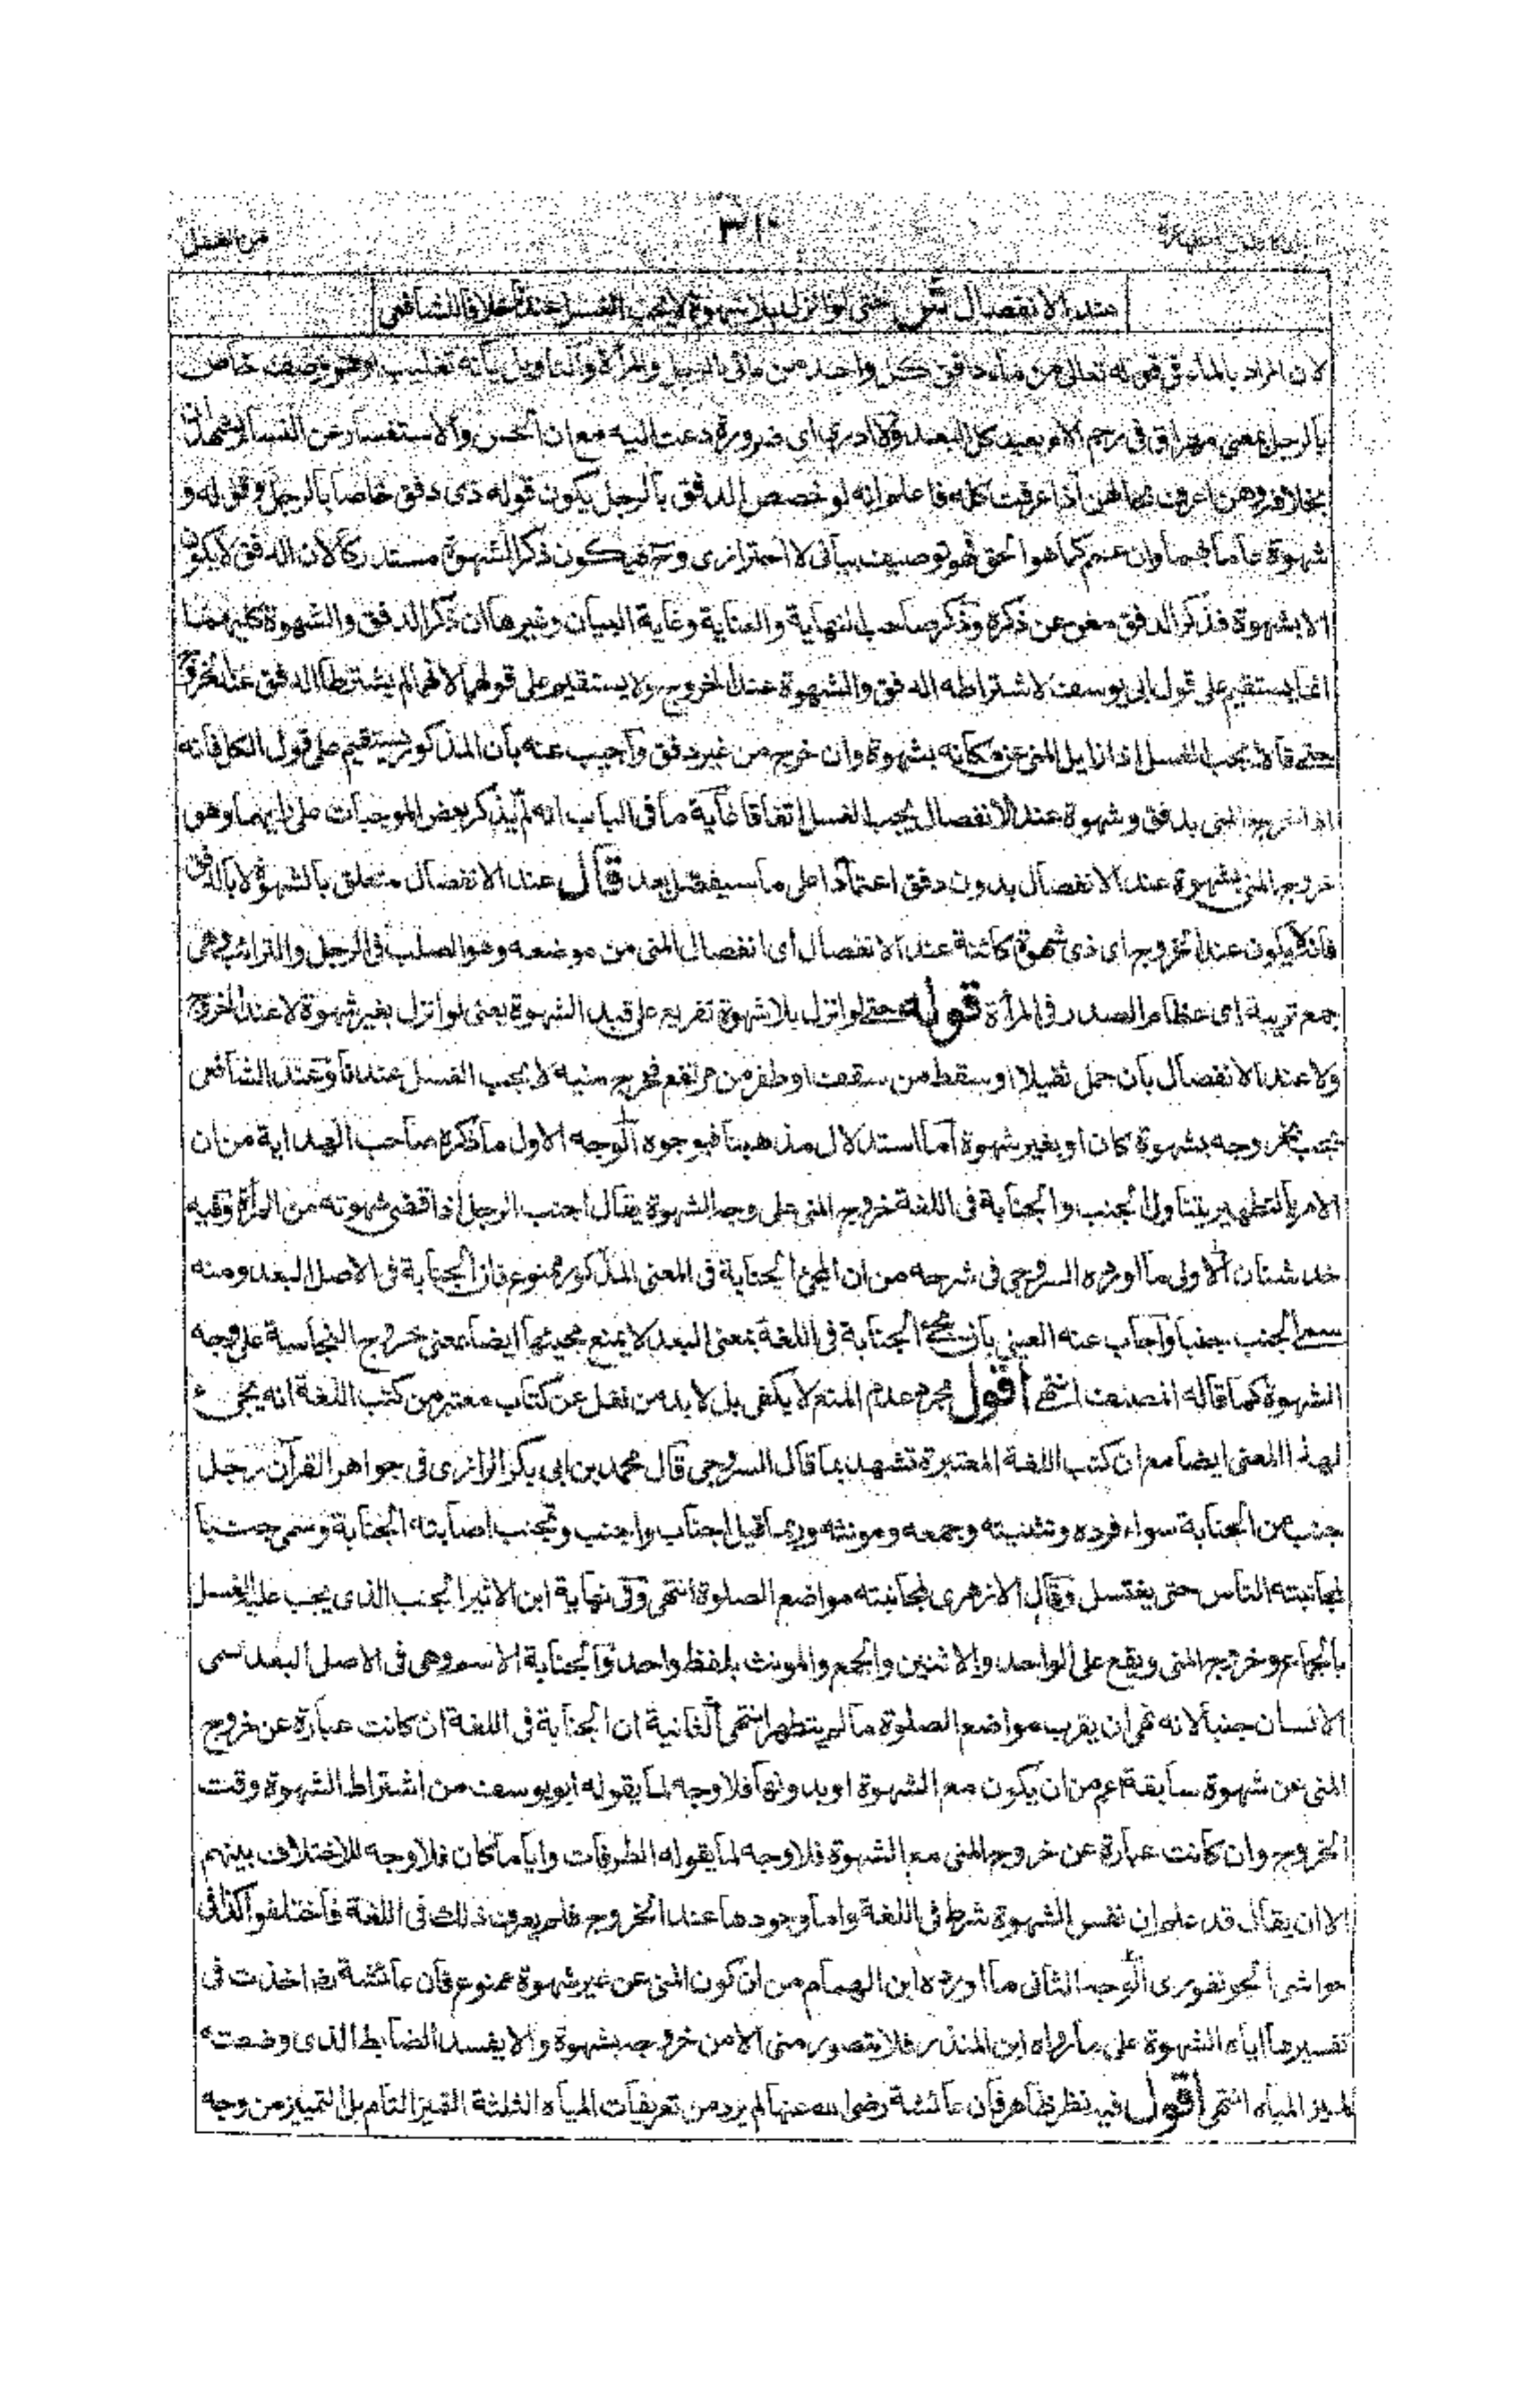 كتاب الطهارة ٣١٠ فرض الغسل
عند الانفصال ش حتى لو انزل بلا شهوة لا يجب الغسل عندنا خلافا للشافعى
لان المراد بالماء فى قوله تعالى من ماء دافق كل واحد من مائى الرجل والمرأة والتاويل بانه تغليب او هو وصف خاص
بالرجل بمعنى مهراق فى رحم الام بعيد كل البعد ولا ادرى اى ضرورة دعت اليه مع ان الحس والاستفسار عن النساء
بخلافه وهن اعرف بمائهن اذا عرفت كله فاعلم انه لو خصص الدفق بالرجل يكون قوله ذى دفق خاصا بالرجل وقوله و
شهوة عاما لهما وان عمم كما هو الحق فهو توصيف بيانى لا احترازى وح يكون ذكر الشهوة مستدركا لان الدفق لا يكون
الا بشهوة فذكر الدفق مغن عن ذكره وذكر صاحب النهاية والعناية وغاية البيان وغيرها ان ذكر الدفق والشهوة كليهما
انما يستقيم على قول ابى يوسف لاشتراطه الدفق والشهوة عند الخروج ولا يستقيم على قولهما لانهما لم يشترطا الدفق عند الخروج
حتى قالا يجب الغسل اذا زايل المنى عن مكانه بشهوة وان خرج من غير دفق واجيب عنه بان المذكور يستقيم على قول الكل فانه
اذا خرج المنى بدفق وشهوة عند الانفصال يجب الغسل اتفاقا غاية ما فى الباب انه لم يذكر بعض الموجبات على رايهما وهو
خروج المنى بشهوة عند الانفصال بدون دفق اعتمادا على ما سيفصل بعد قال عند الانفصال متعلق بالشهوة لا بالدفق
فانه لا يكون عند الخروج اى ذى شهوة كائنة عند الانفصال اى انفصال المنى من موضعه وهو الصلب فى الرجل والترائب وهى
جمع تريبة اى عظام الصدر فى المرأة قوله حتى لو انزل بلا شهوة تفريع على قيد الشهوة يعنى لو انزل بغير شهوة لا عند الخروج
ولا عند الانفصال بان حمل ثقيلا او سقط من سقف او طفر من مرتفع فخرج منيه لا يجب الغسل عندنا وعند الشافعى
يجب بخروجه بشهوة كان او بغير شهوة اما استدلال مذهبنا فبوجوه الوجه الاول ما ذكره صاحب الهداية من ان
الامر بالتطهير يتناول الجنب والجنابة فى اللغة خروج المنى على وجه الشهوة يقال اجنب الرجل اذا قضى شهوته من المرأة وفيه
خدشتان الاولى ما اورده السروجى فى شرحه من ان مجئ الجنابة فى المعنى المذكور ممنوع فان الجنابة فى الاصل البعد ومنه
سمى الجنب جنبا واجاب عنه العينى بان مجئ الجنابة فى اللغة بمعنى البعد لا يمنع مجيئها ايضا بمعنى خروج النجاسة على وجه
الشهوة كما قاله المصنف انتهى اقول مجرد عدم المنع لا يكفى بل لا بد من نقل عن كتاب معتبر من كتب اللغة انه يجئ
لهذا المعنى ايضا مع ان كتب اللغة المعتبرة تشهد بما قال السروجى قال محمد بن ابى بكر الرازى فى جواهر القرآن رجل
جنب من الجنابة سواء فرده وتثنيته وجمعه ومونثه وربما قيل اجناب واجنب وتجنب اصابته الجنابة وسمى جنبا
لمجانبته الناس حتى يغتسل وقال الازهرى لمجانبته مواضع الصلوة انتهى وفى نهاية ابن الاثير الجنب الذى يجب عليه الغسل
بالجماع وخروج المنى ويقع على الواحد والاثنين والجمع والمونث بلفظ واحد والجنابة الاسم وهى فى الاصل البعد سمى
الانسان جنبا لانه نهى ان يقرب مواضع الصلوة ما لم يتطهر انتهى الثانية ان الجنابة فى اللغة ان كانت عبارة عن خروج
المنى عن شهوة سابقة اعم من ان يكون مع الشهوة او بدونها فلا وجه لما يقوله ابو يوسف من اشتراط الشهوة وقت
الخروج وان كانت عبارة عن خروج المنى مع الشهوة فلا وجه لما يقوله الطرفان وايا ما كان فلا وجه للاختلاف بينهم
الا ان يقال قد علم ان نفس الشهوة شرط فى اللغة واما وجودها عند الخروج فلم يعرف ذلك فى اللغة فاختلفوا كذا فى
حواشى الجونفورى الوجه الثانى ما اورده ابن الهمام من ان كون المنى عن غير شهوة ممنوع فان عائشة رض اخذت فى
تفسيرها اياه الشهوة على ما رواه ابن المنذر فلا يتصور منى الا من خروجه بشهوة والا يفسد الضابط الذى وضعته
لميز المياه انتهى اقول فيه نظر ظاهر فان عائشة رضى الله عنها لم يرد من تعريفات المياه الثلثة التميز التام بل التمييز من وجه